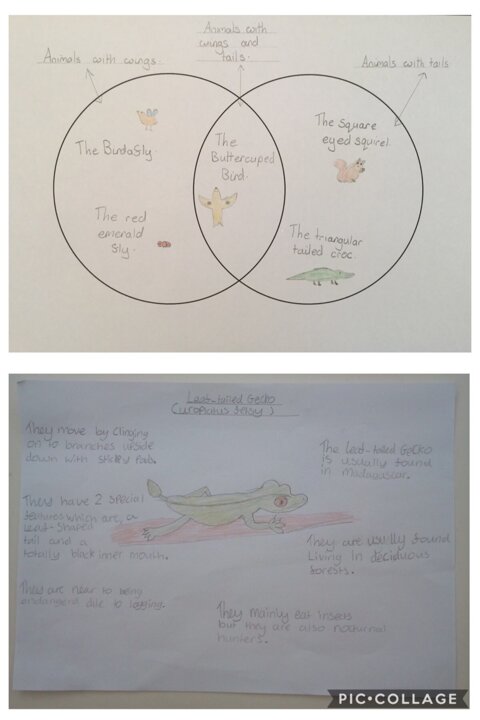 Animals with wings and tails
Animals with wings.
Animals with tails
The Birdafly.
The Buttercuped Bird.
The Square eyed squirrel.
The red emerald fly.
The triangular tailed croc.
Leaf-tailed Gecko
They move by clinging
on to branches upside
down with sticky pads.
The leaf-tailed Gecko
is usually found
in Madagascar.
They have 2 special
features which are, a
leaf-shaped
tail and a
totally black inner mouth.
They are usually found
Living in deciduous
forests.
They are near to being
endangered due to logging.
They mainly eat insects
but they are also nocturnal
hunters.
PIC•COLLAGE